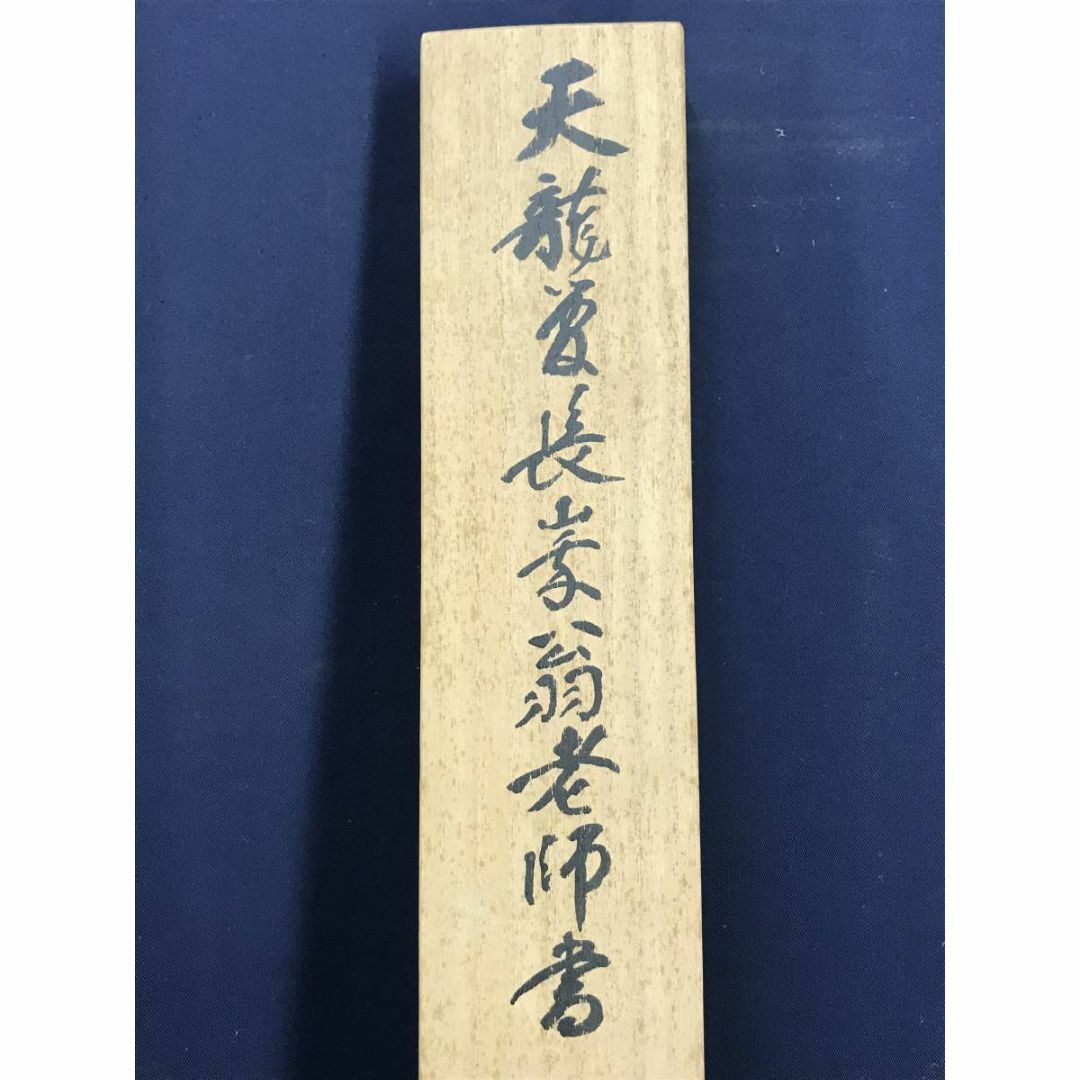 天龍管長峩翁老師書